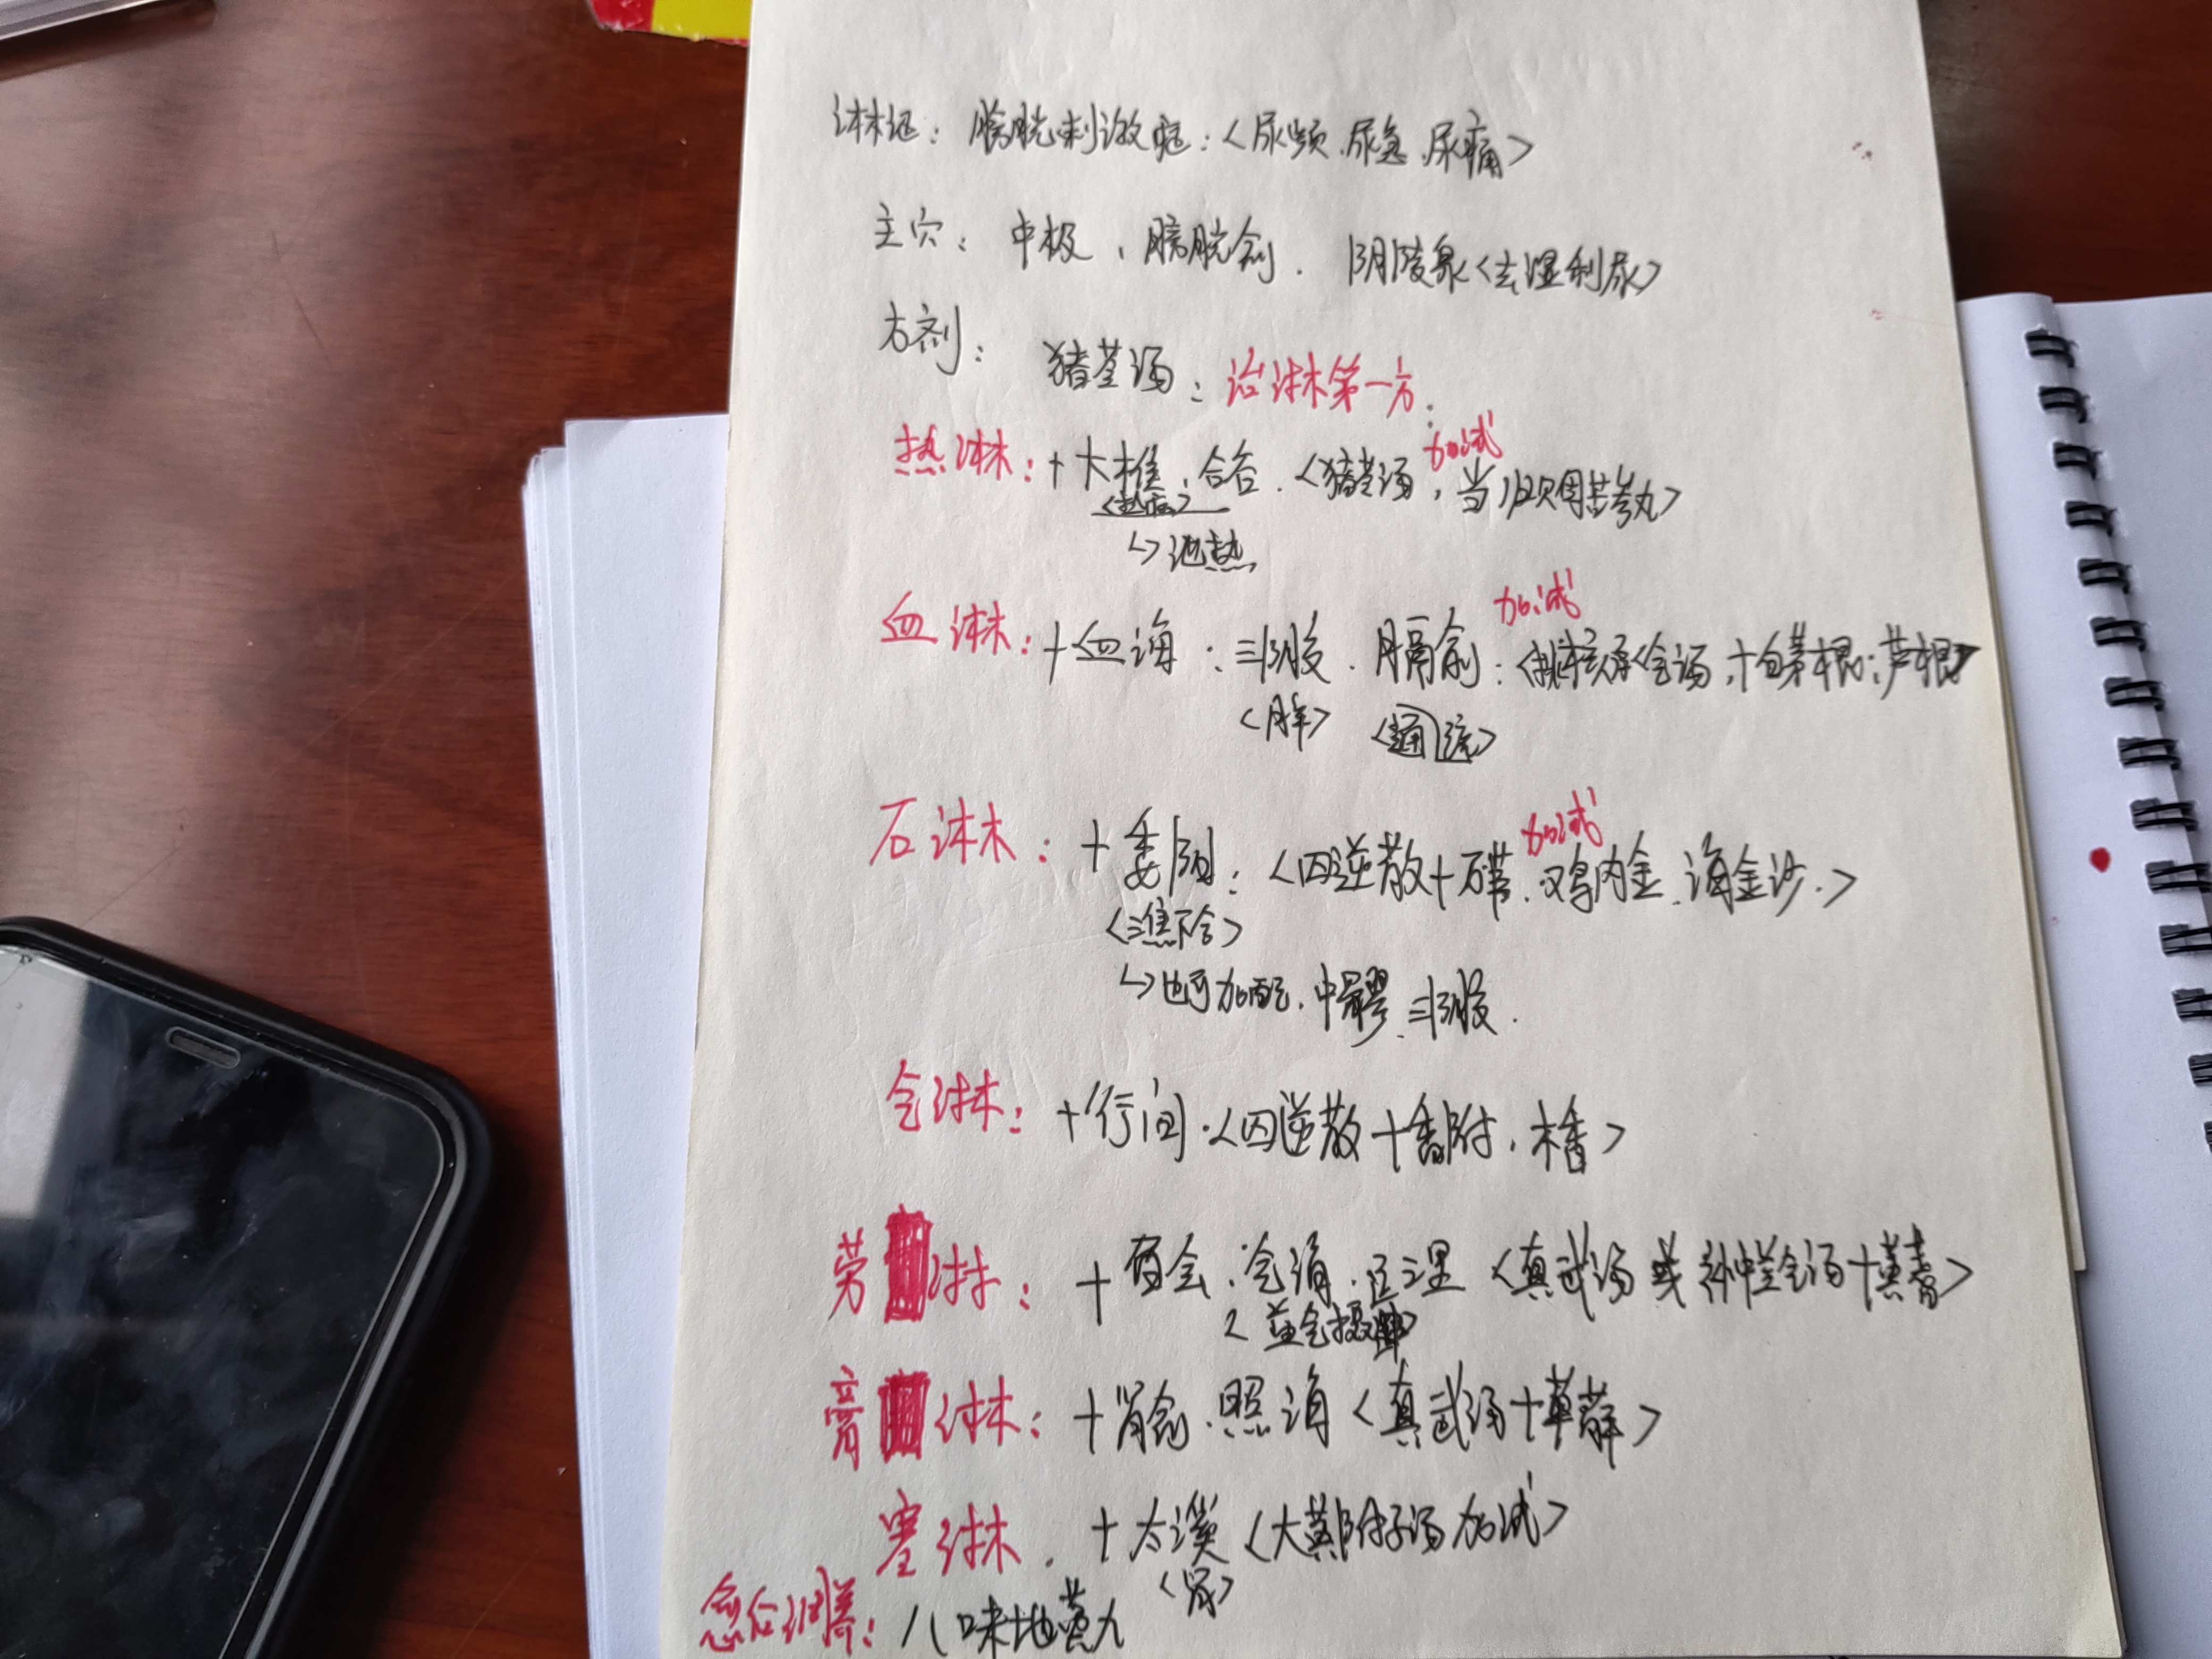 淋证：膀胱刺激症：<尿频、尿急、尿痛>
主穴：中极、膀胱俞、阴陵泉<去湿利尿>
方剂：猪苓汤：治淋第一方：
热淋：+大椎、合谷.<猪苓汤加减，当归贝母苦参丸>
↳泄热
血淋：+血海：三阴交、膈俞：<桃核承气汤加减，+白茅根；芦根>
<脾>
石淋：+委阳：<四逆散+石韦、鸡内金、海金沙.>加减
<三焦下合>
↳也可加配、中髎、三阴交.
气淋：+行间.<四逆散+香附、木香>
劳淋：+百会、气海、足三里<真武汤或补中益气汤+黄耆>
<益气摄>
膏淋：+肾俞、照海<真武汤+萆薢>
寒淋.+太溪<大黄附子汤加减>
<尿>
愈后调养：八味地黄丸